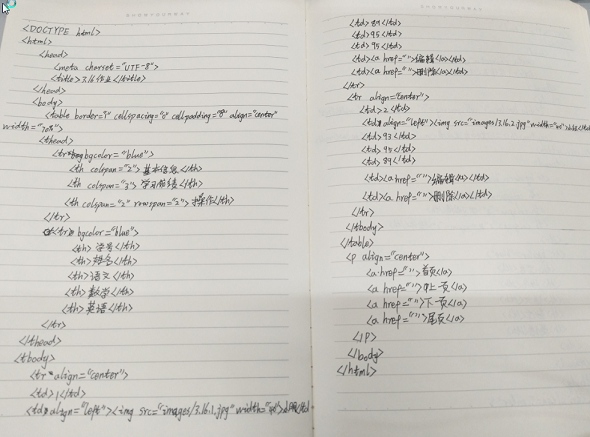 <!DOCTYPE html>
<html>
<head>
<meta charset="UTF-8">
<title>3.16作业</title>
</head>
<body>
<table border="1" cellspacing="0" cellpadding="0" align="center"
width="70%">
<thead>
<tr bgcolor="blue">
<th colspan="2">基本信息</th>
<th colspan="3">学习成绩</th>
<th colspan="2" rowspan="2">操作</th>
</tr>
<tr bgcolor="blue">
<th>学号</th>
<th>姓名</th>
<th>语文</th>
<th>数学</th>
<th>英语</th>
</tr>
</thead>
<tbody>
<tr align="center">
<td>1</td>
<td align="left"><img src="images/3.16.1.jpg" width=
<td>89</td>
<td>95</td>
<td>95</td>
<td><a href="">编辑</a></td>
<td><a href="">删除</a></td>
</tr>
<tr align="center">
<td>2</td>
<td align="left"><img src="images/3.16.2.jpg" width=
<td>93</td>
<td>95</td>
<td>89</td>
<td><a href="">编辑</a></td>
<td><a href="">删除</a></td>
</tr>
</tbody>
</table>
<p align="center">
<a href="">首页</a>
<a href="">上一页</a>
<a href="">下一页</a>
<a href="">尾页</a>
</p>
</body>
</html>